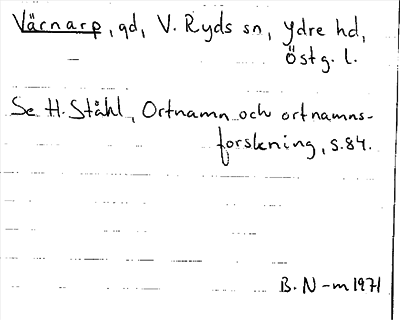 Värnarp, gd, V. Ryds sn, Ydre hd,
Östg. l.
Se H. Ståhl, Ortnamn och ortnamns-
forskning, s. 84.
B. N-m 1971